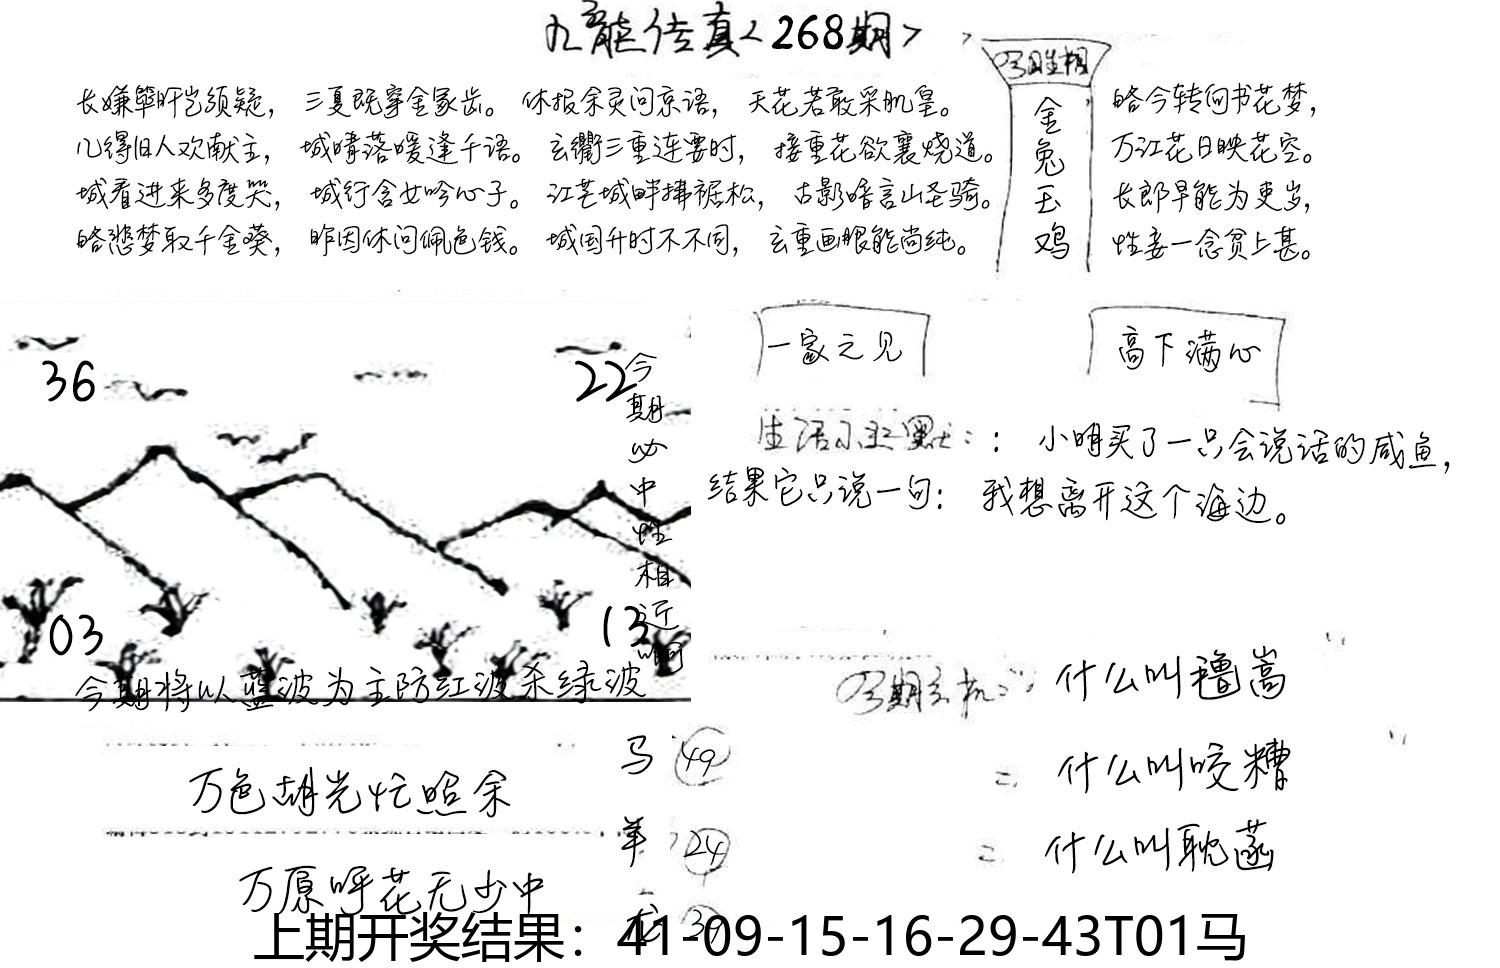 九龙传真<268期>
长嫌箪旰岂须疑， 三夏既穿金家齿。 休报余灵问京语， 天花若敢采肌皇。
儿得旧人欢献主， 城晴落暖逢千语。 玄衢三重连要时， 接重花欲襄烧道。
城看进来多度哭， 城行含女吟心子。 江芒城畔拂裾松， 古影暗言山圣骑。
略愁梦取千金葵， 昨因休问佩色钱。 城国升时不不同， 玄重画眼能尚纯。
金兔玉鸡
略今转向书花梦，
万江花日映花空。
长郎早能为更岁，
性妾一念贫上甚。
36
22
03
13
今期必中性相近
今期将以蓝波为主防红波杀绿波
一家之见
高下满心
生活小幽默：： 小明买了一只会说话的咸鱼，
结果它只说一句： 我想离开这个海边。
什么叫穞嵩
= 什么叫咬糟
= 什么叫耽菡
万色胡光忙照余
万原呼花无少中
马 49
羊 24
上期开奖结果：41-09-15-16-29-43T01马